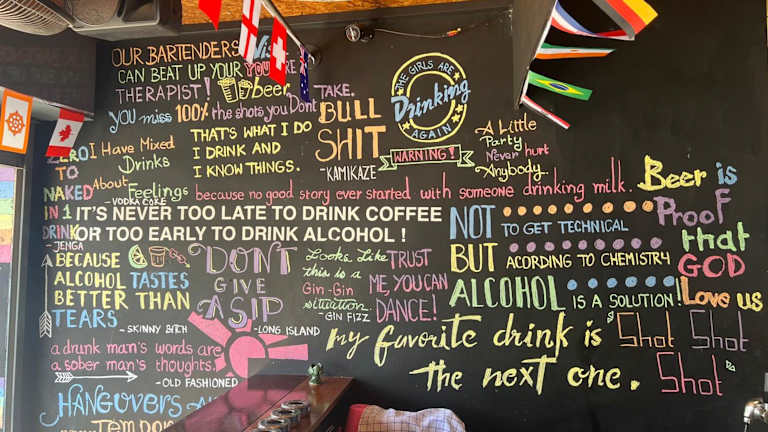 OUR BARTENDERS
CAN BEAT UP YOUR
THERAPIST!
beer
YOU ARE
you miss 100% the shots you Dont TAKE.
THE GIRLS ARE
Drinking
AGAIN
WARNING!
ZERO
TO
NAKED
IN 1
DRINK
- JENGA
I Have Mixed
Drinks
About Feelings
- VODKA COKE
THAT'S WHAT I DO
I DRINK AND
I KNOW THINGS.
BULL
SHIT
- KAMIKAZE
A Little
Party
Never hurt
Anybody.
because no good story ever started with someone drinking milk.
IT'S NEVER TOO LATE TO DRINK COFFEE
OR TOO EARLY TO DRINK ALCOHOL !
Beer is
Proof
that
GOD
Love us
NOT TO GET TECHNICAL
BUT ACORDING TO CHEMISTRY
ALCOHOL IS A SOLUTION!
BECAUSE
ALCOHOL TASTES
BETTER THAN
TEARS
- SKINNY BITCH
DON'T
GIVE
A SIP
- LONG ISLAND
Looks Like
this is a
Gin-Gin
situation.
- GIN FIZZ
TRUST
ME, YOU CAN
DANCE!
my favorite drink is
the next one.
Shot Shot
Shot
a drunk man's words are
a sober man's thoughts.
- OLD FASHIONED
HANGOVERS